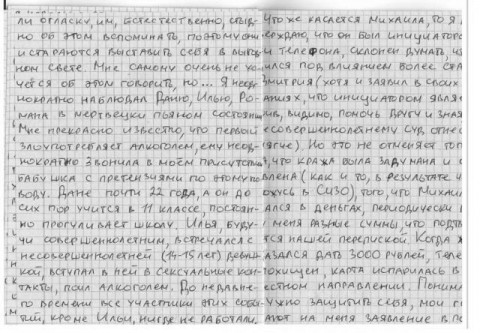 ли огласку, им, естественно, стыд-
но об этом вспоминать, поэтому они
и стараются выставить себя в выгод-
ном свете. Мне самому очень не хо-
чется об этом говорить, но... Я неод-
нократно наблюдал Даню, Илью, Ро-
мана в мертвецки пьяном состоянии
Мне прекрасно известно, что первый
злоупотребляет алкоголем, ему неод-
нократно звонила в моём присутствии
бабушка с претензиями по этому по-
воду. Дане почти 22 года, а он до
сих пор учится в 11 классе, постоян-
но прогуливает школу. Илья, буду-
чи совершеннолетним, встречался с
несовершеннолетней (14-15 лет) девуш-
кой, вступал в ней в сексуальные кон-
такты, поил алкоголем. До недавне-
го времени все участники этих собы-
тий, кроме Ильи, нигде не работали,
что же касается Михаила, то я
что он был инициатором
и телефона, склонен думать,
под влиянием более
Дмитрия (хотя и заявил в своих
что инициатором
видимо, помочь другу и зная
несовершеннолетнему суд
Но это не отменяет
что кража была задумана и
(как и то, в результате
в СИЗО), того, что
в деньгах, периодически
у меня разные суммы, что
нашей перепиской. Когда
дать 3000 рублей,
похищен, карта испарилась в
направлении.
нужно защитить себя, мои
на меня заявление в